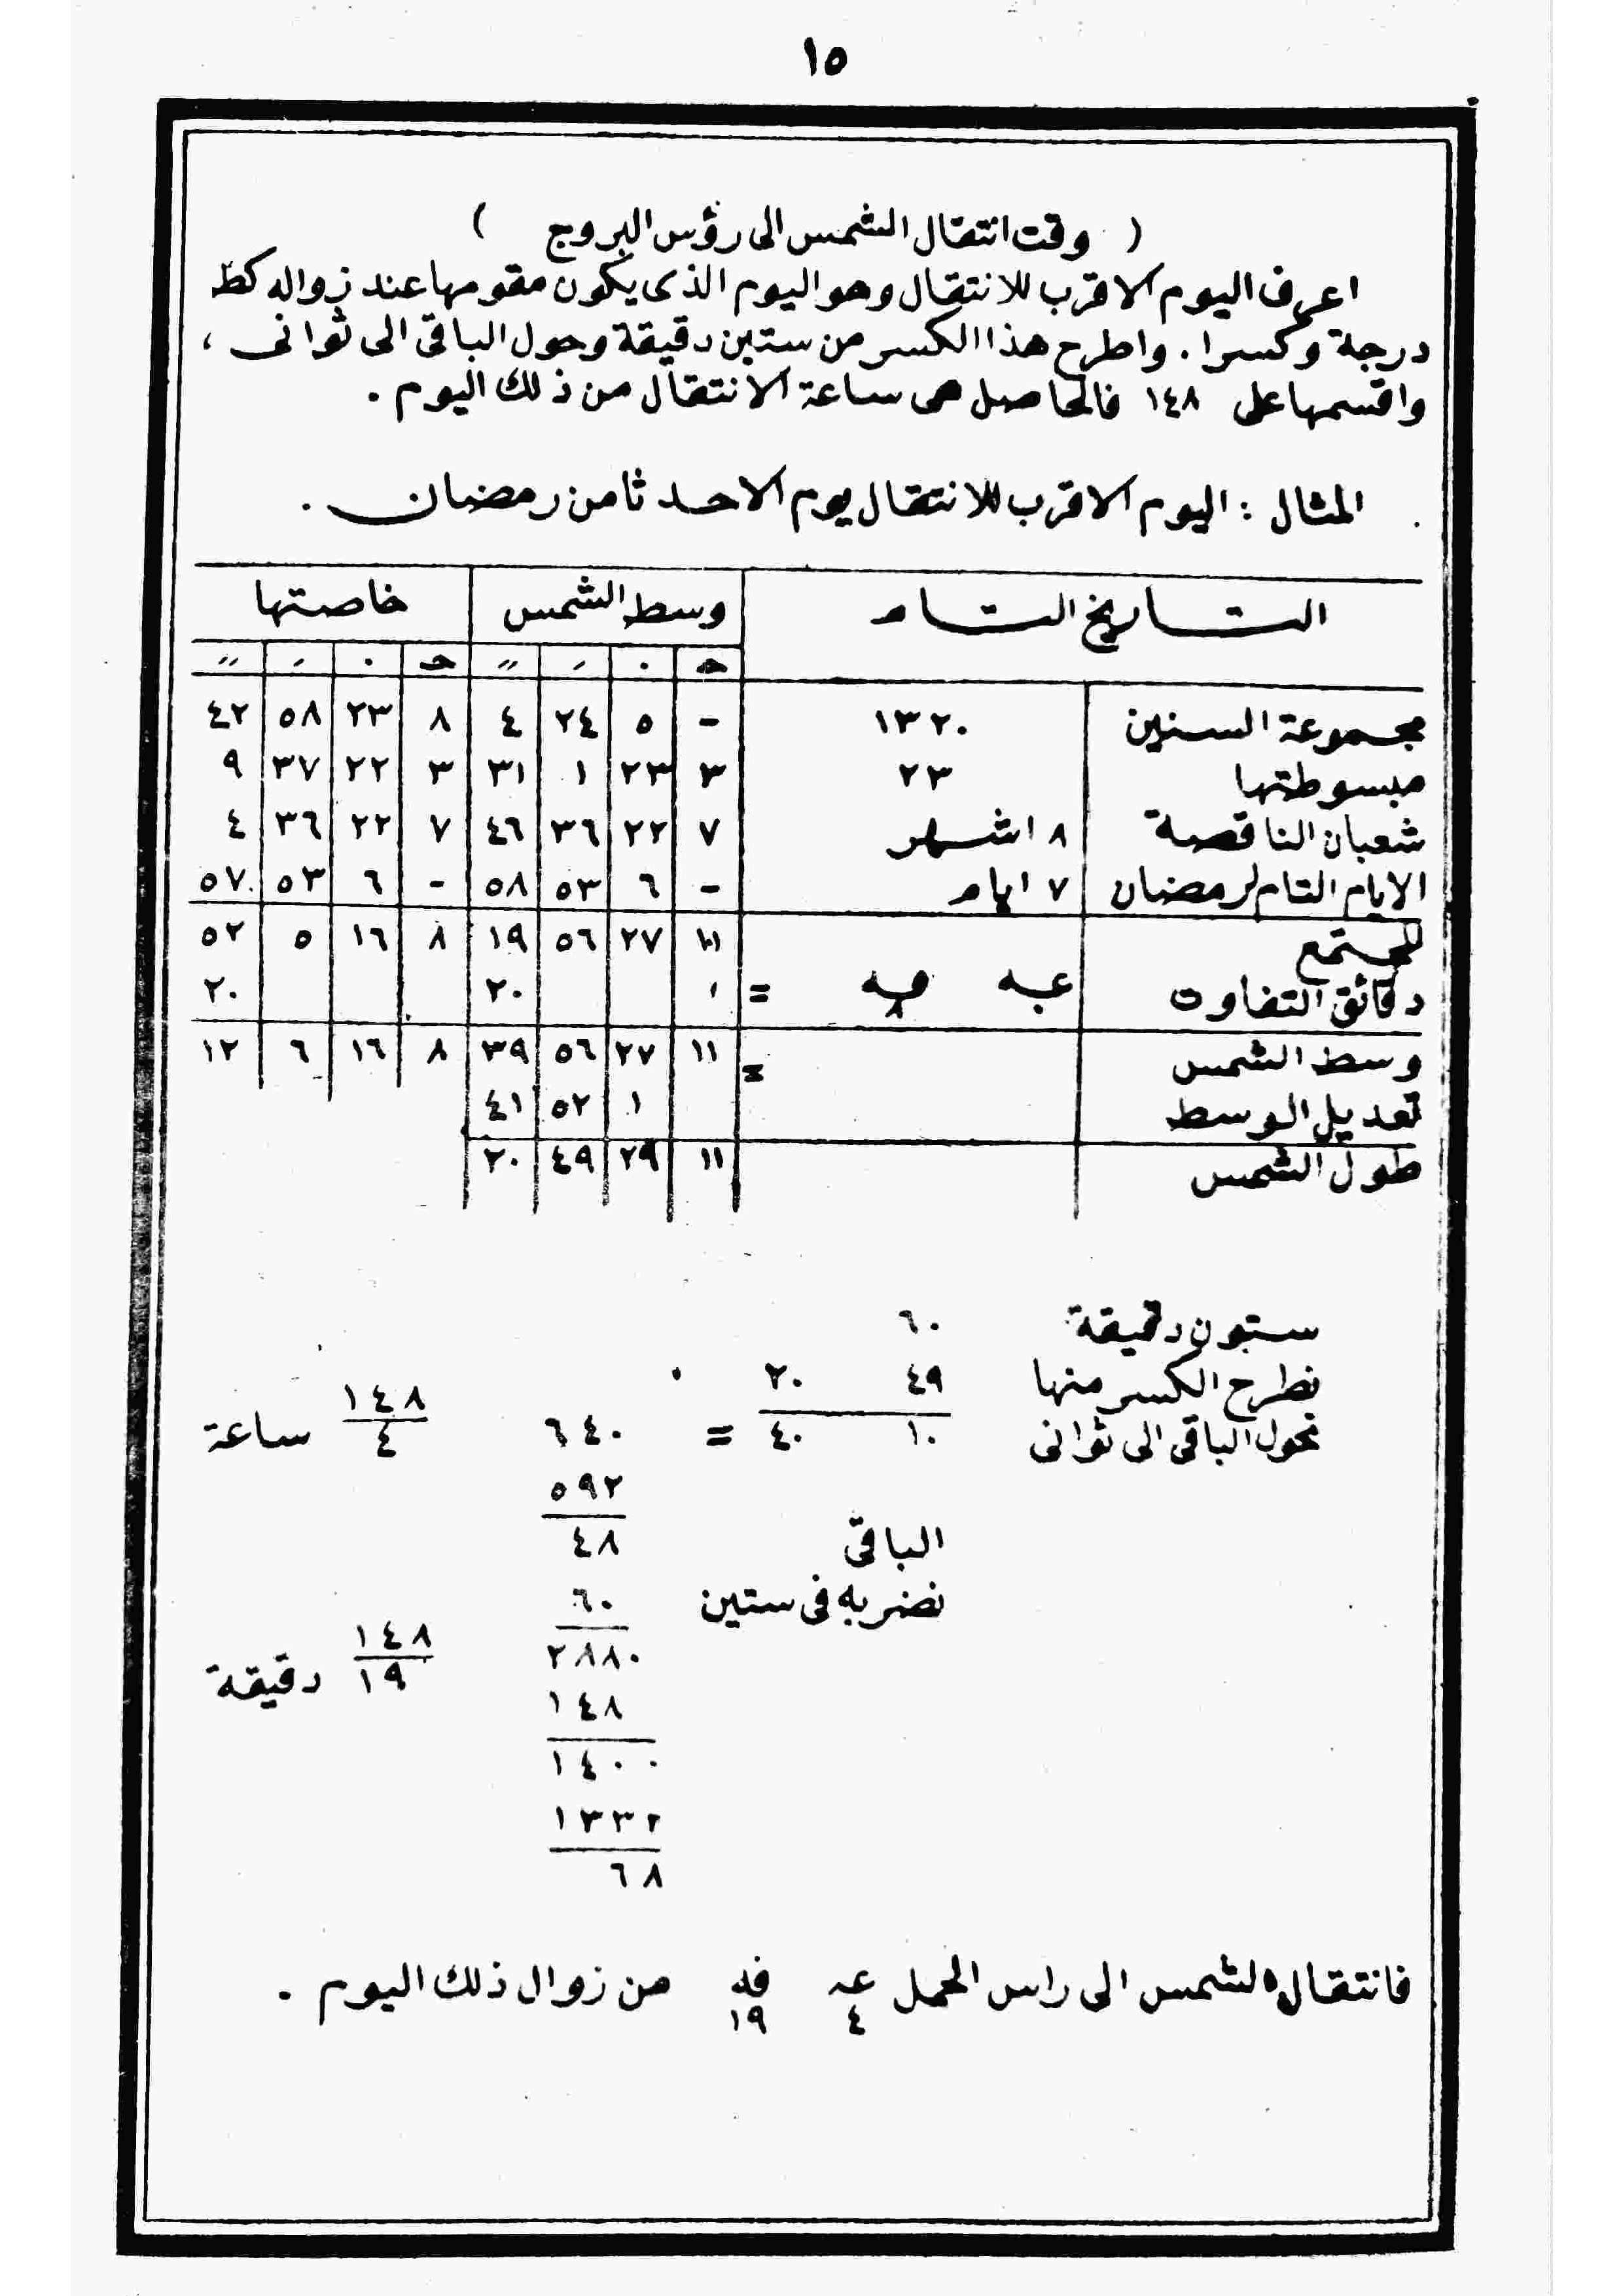 ١٥
( وقت انتقال الشمس الى رؤس البروج )
اعرف اليوم الاقرب للانتقال وهو اليوم الذى يكون مقومها عند زواله كط
درجة وكسرا . واطرح هذا الكسر من ستين دقيقة وحول الباقى الى ثوانى ،
واقسمها على ١٤٨ فالحاصل هى ساعة الانتقال من ذلك اليوم .
المثال : اليوم الاقرب للانتقال يوم الاحد ثامن رمضان .
التاريخ التام وسط الشمس خاصتها
مجموعة السنين ١٣٢٠ - ٥ ٢٤ ٤ ٨ ٢٣ ٥٨ ٤٢
مبسوطتها ٢٣ ٣ ٢٣ ١ ٣١ ٣ ٢٢ ٣٧ ٩
شعبان الناقصة ٨ اشهر ٧ ٢٢ ٣٦ ٤٦ ٧ ٢٢ ٣٦ ٤
الايام التام لرمضان ٧ ايام - ٦ ٥٣ ٥٨ - ٦ ٥٣ ٥٧
المجتمع ١١ ٢٧ ٥٦ ١٩ ٨ ١٦ ٥ ٥٢
دقائق التفاوت = ٢٠ ٢٠
وسط الشمس = ١١ ٢٧ ٥٦ ٣٩ ٨ ١٦ ٦ ١٢
تعديل الوسط ١ ٥٢ ٤١
طول الشمس ١١ ٢٩ ٤٩ ٢٠
ستون دقيقة ٦٠
نطرح الكسر منها ٤٩ ٢٠
نحول الباقى الى ثوانى ١٠ ٤٠ = ٦٤٠ ١٤٨ ٤ ساعة
٥٩٢
الباقى ٤٨
نضربه فى ستين ٦٠
٢٨٨٠ ١٤٨ ١٩ دقيقة
١٤٨
١٤٠٠
١٣٣٢
٦٨
فانتقال الشمس الى راس الحمل عه ٤ قه ١٩ من زوال ذلك اليوم .